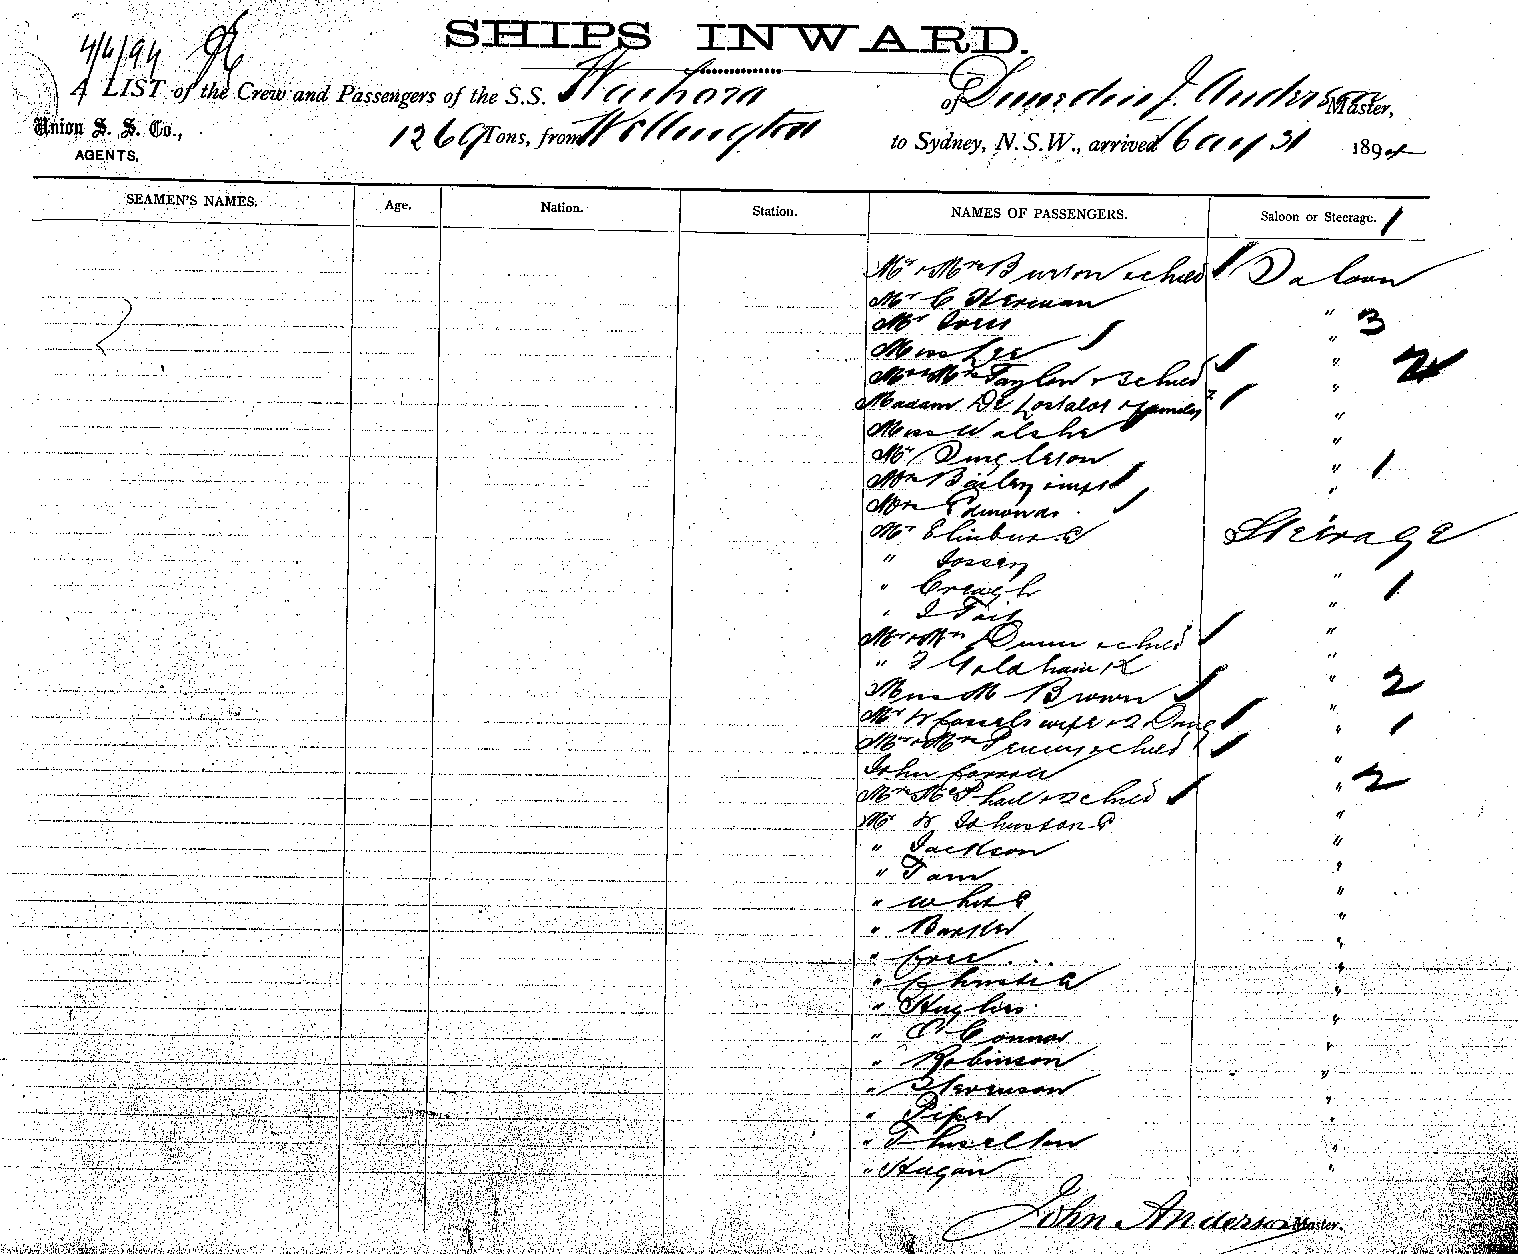 SHIPS INWARD.
4/6/94
A LIST of the Crew and Passengers of the S.S. Waihora of Dunedin J. Anderson Master,
Union S. S. Co., AGENTS,
1269 Tons, from Wellington to Sydney, N.S.W., arrived May 31 1894
SEAMEN'S NAMES. Age. Nation. Station. NAMES OF PASSENGERS. Saloon or Steerage. 1
Mr & Mrs Burson & child Saloon
Mr C Herman " 3
Mr "
Miss Lee " 2
Mr & Mrs Taylor & 3 child "
Madam De Lostalot & family "
Miss Walshe "
Mr Singleton " 1
Mrs Bailey & inft "
Mrs Edmonds "
Mr Steerage
"
" Creagh " 1
" Tait "
Mr & Mrs Dunn & child "
" " 2
Miss M Brown "
Mr wife & 2 " 1
Mr & Mrs & child "
John " 2
Mrs McPhail & 2 child "
Mr Johnston "
" Jackson "
" Tam "
" White "
" Barker "
" "
" Christie "
" Hughes "
" O'Connor "
" Robinson "
" Stevenson "
" Piper "
" "
" Hugan "
John Anderson Master.